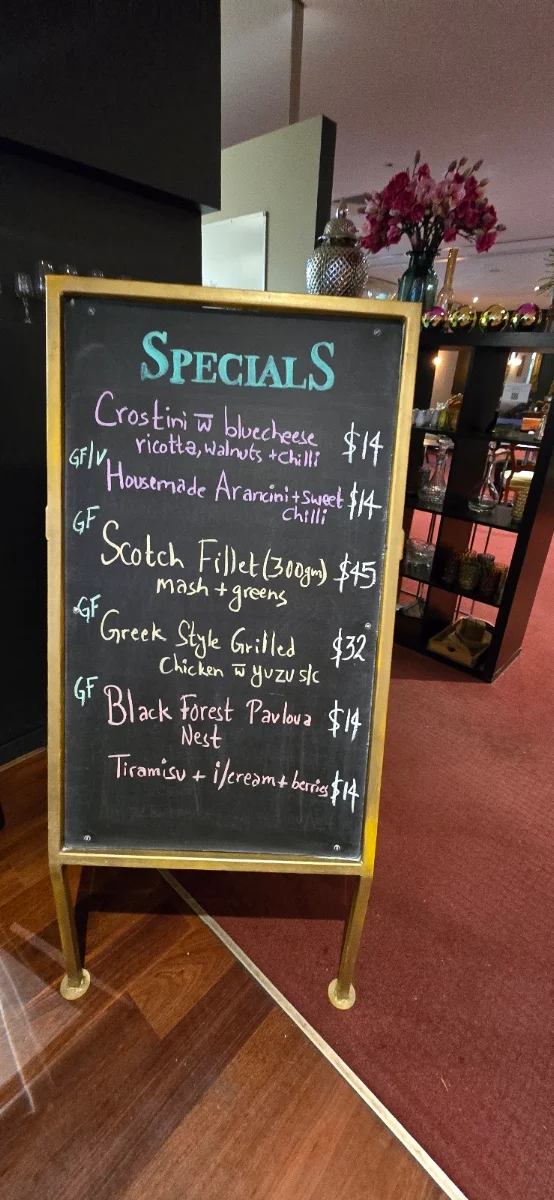 SPECIALS
Crostini w̅ bluecheese
ricotta, walnuts + chilli $14
GF/V
Housemade Arancini + sweet $14
chilli
GF
Scotch Fillet (300gm) $45
mash + greens
GF
Greek Style Grilled $32
Chicken w̅ yuzu s/c
GF
Black Forest Pavlova $14
Nest
Tiramisu + i/cream + berries $14